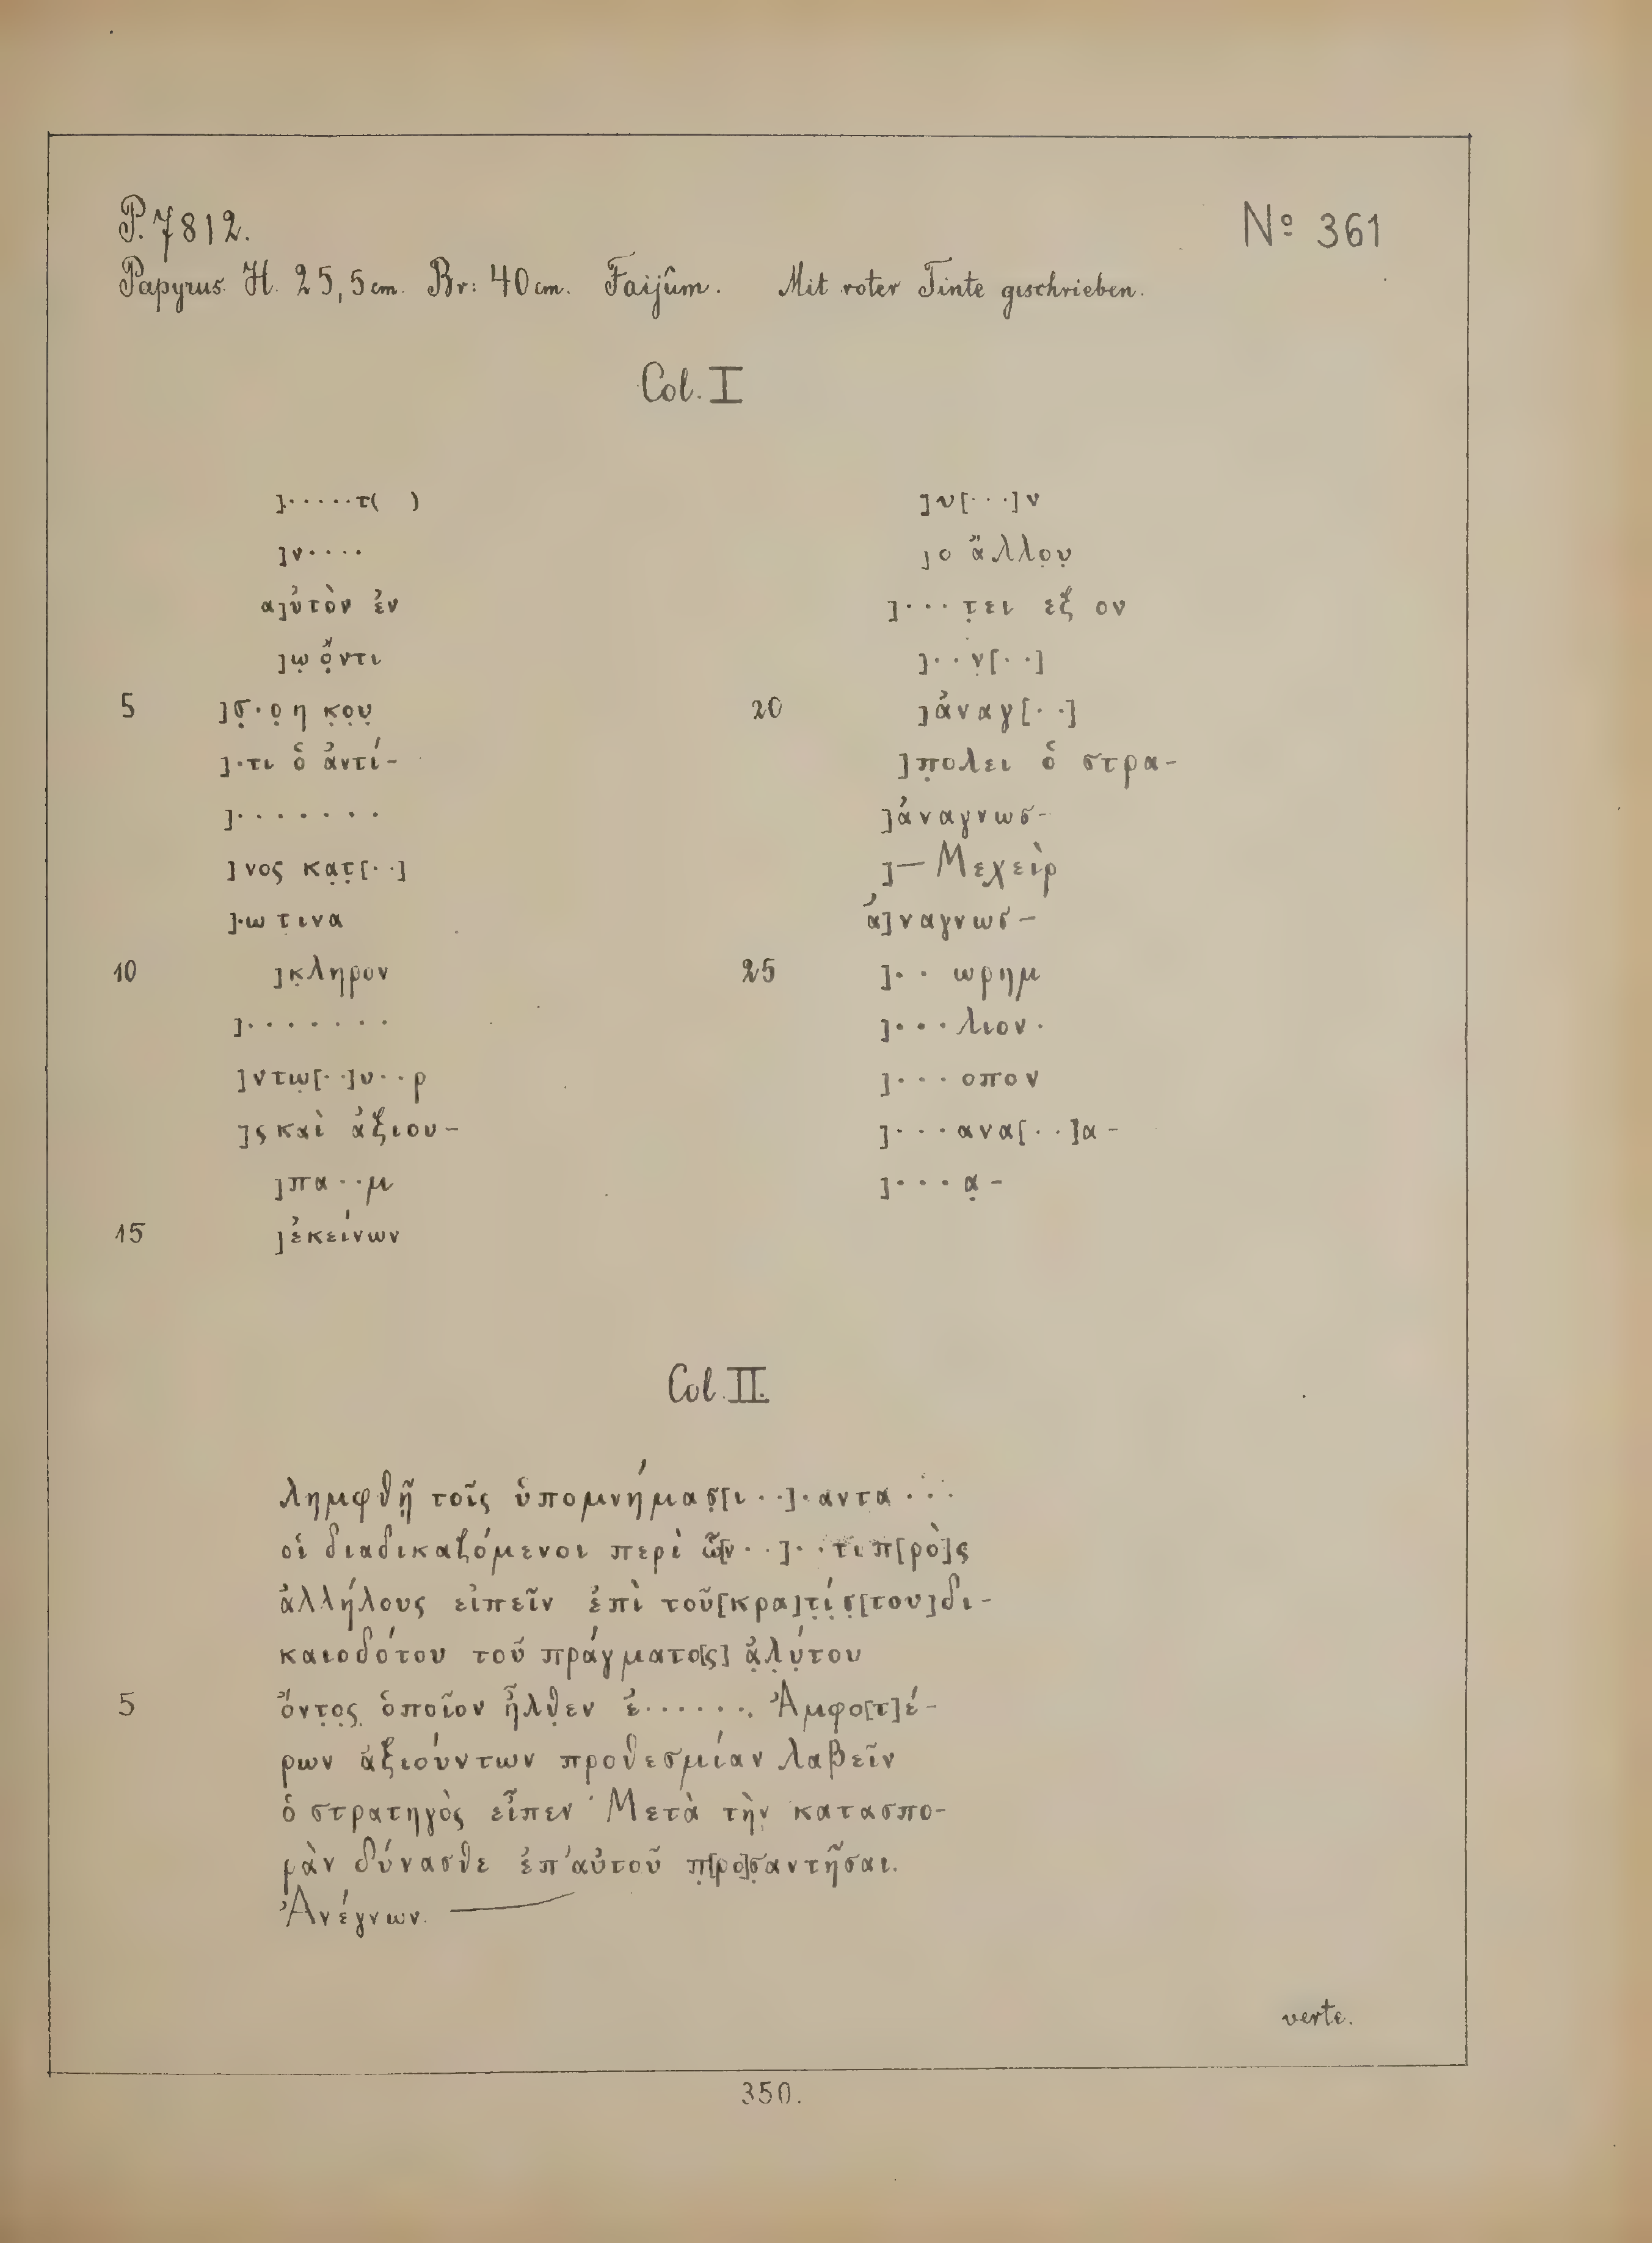 P. 7812.
Nº 361
Papyrus. H. 25,5 cm. Br: 40 cm. Faijûm. Mit roter Tinte geschrieben.
Col. I
]·····τ( )
]ν····
α]ὐτὸν ἐν
]ῳ ὄ̣ντι
5 ]σ̣·ο̣ η κ̣ο̣υ̣
]·τι ὁ ἀντί-
]·······
]νος κα̣τ̣[··]
]·ω τ̣ινα
10 ]κ̣ληρον
]·······
]ντω̣[··]υ··ρ
]ς καὶ ἀξιου-
]πα··μ
15 ]ἐκείνων
]υ[···]ν
]ο ἄλλο̣υ̣
]···τ̣ει εξ ον
]··ν̣[··]
20 ]ἀναγ[··]
]π̣ολει ὁ στρα-
]ἀναγνωσ-
]— Μεχεὶρ
ἀ]ναγνωσ-
25 ]·· ωρημ
]···λιον·
]···οπον
]···ανα[··]α-
]···α̣-
Col. II.
λημφθῇ τοῖς ὑπομνήμασ̣[ι··]·αντα···
οἱ διαδικαζόμενοι περὶ ὧ[ν··]··τι π[ρὸ]ς
ἀλλήλους εἰπεῖν ἐπὶ τοῦ [κρα]τ̣ί̣σ̣[του] δι-
καιοδότου τοῦ πράγματο[ς] ἀ̣λ̣ύ̣του
5 ὄντ̣ο̣ς̣ ὁποῖον ἦλθ̣εν ἐ······. Ἀμφο[τ]έ-
ρων ἀξιούντων προθεσμίαν λαβεῖν
ὁ στρατηγὸς εἶπεν· Μετὰ τὴν κατασπο-
ρὰν δύνασθε ἐπ' αὐτοῦ π̣[ρο]σ̣αντῆσαι.
Ἀνέγνων. —
verte.
350.